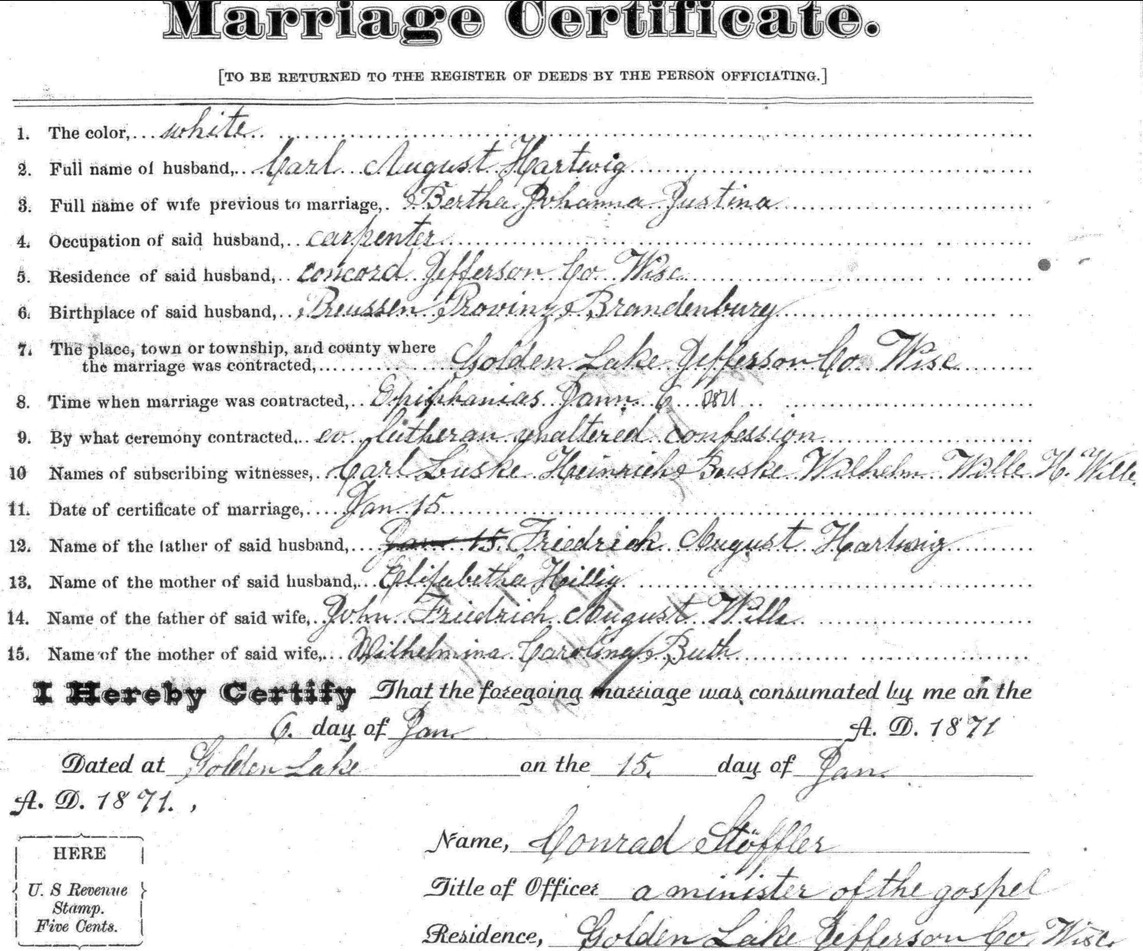 Marriage Certificate.
[TO BE RETURNED TO THE REGISTER OF DEEDS BY THE PERSON OFFICIATING.]
1. The color, white
2. Full name of husband, Carl August Hartwig
3. Full name of wife previous to marriage, Bertha Johanna Justina
4. Occupation of said husband, carpenter
5. Residence of said husband, concord Jefferson Co. Wisc
6. Birthplace of said husband, Preussen Provinz Brandenburg
7. The place, town or township, and county where
the marriage was contracted, Golden Lake Jefferson Co. Wisc
8. Time when marriage was contracted, Epiphanias Jann. 6
9. By what ceremony contracted, ev. lutheran unaltered confession
10 Names of subscribing witnesses, Carl Luske Heinrich Wilhelm Wille H. Wille
11. Date of certificate of marriage, Jan 15
12. Name of the father of said husband, Jan 15. Friedrich August Hartwig
13. Name of the mother of said husband, Elisabetha Hillig
14. Name of the father of said wife, John Friedrich August Wille
15. Name of the mother of said wife, Wilhelmina Carolina Buth
I Hereby Certify That the foregoing marriage was consumated by me on the
6. day of Jan. A. D. 1871
Dated at Golden Lake on the 15. day of Jan.
A. D. 1871. ,
HERE
U. S Revenue
Stamp.
Five Cents.
Name, Conrad Stöffler
Title of Officer a minister of the gospel
Residence, Golden Lake Jefferson Co Wisc.